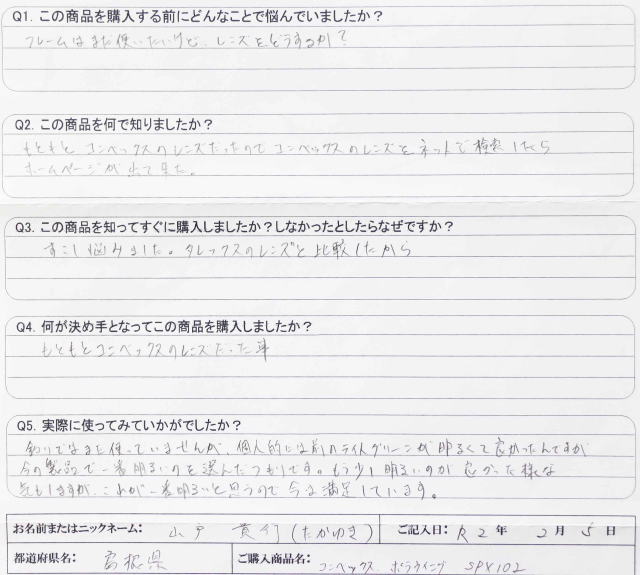 Q1. この商品を購入する前にどんなことで悩んでいましたか？
フレームはまだ使いたいけど、レンズをどうするか？
Q2. この商品を何で知りましたか？
もともとコンベックスのレンズだったのでコンベックスのレンズをネットで検索したら
ホームページが出て来た。
Q3. この商品を知ってすぐに購入しましたか？しなかったとしたらなぜですか？
すこし悩みました。タレックスのレンズと比較したから
Q4. 何が決め手となってこの商品を購入しましたか？
もともとコンベックスのレンズだった事
Q5. 実際に使ってみていかがでしたか？
釣りではまだ使っていませんが、個人的には前のライトグリーンが明るくて良かったんですが
今の製品で一番明るいのを選んだつもりです。もう少し明るいのが良かった様な
気もしますが、これが一番明るいと思うので今は満足しています。
お名前またはニックネーム： 山戸 貴行(たかゆき) ご記入日：R2年 2月5日
都道府県名： 島根県 ご購入商品名：コンベックス ポラウイング SPX102